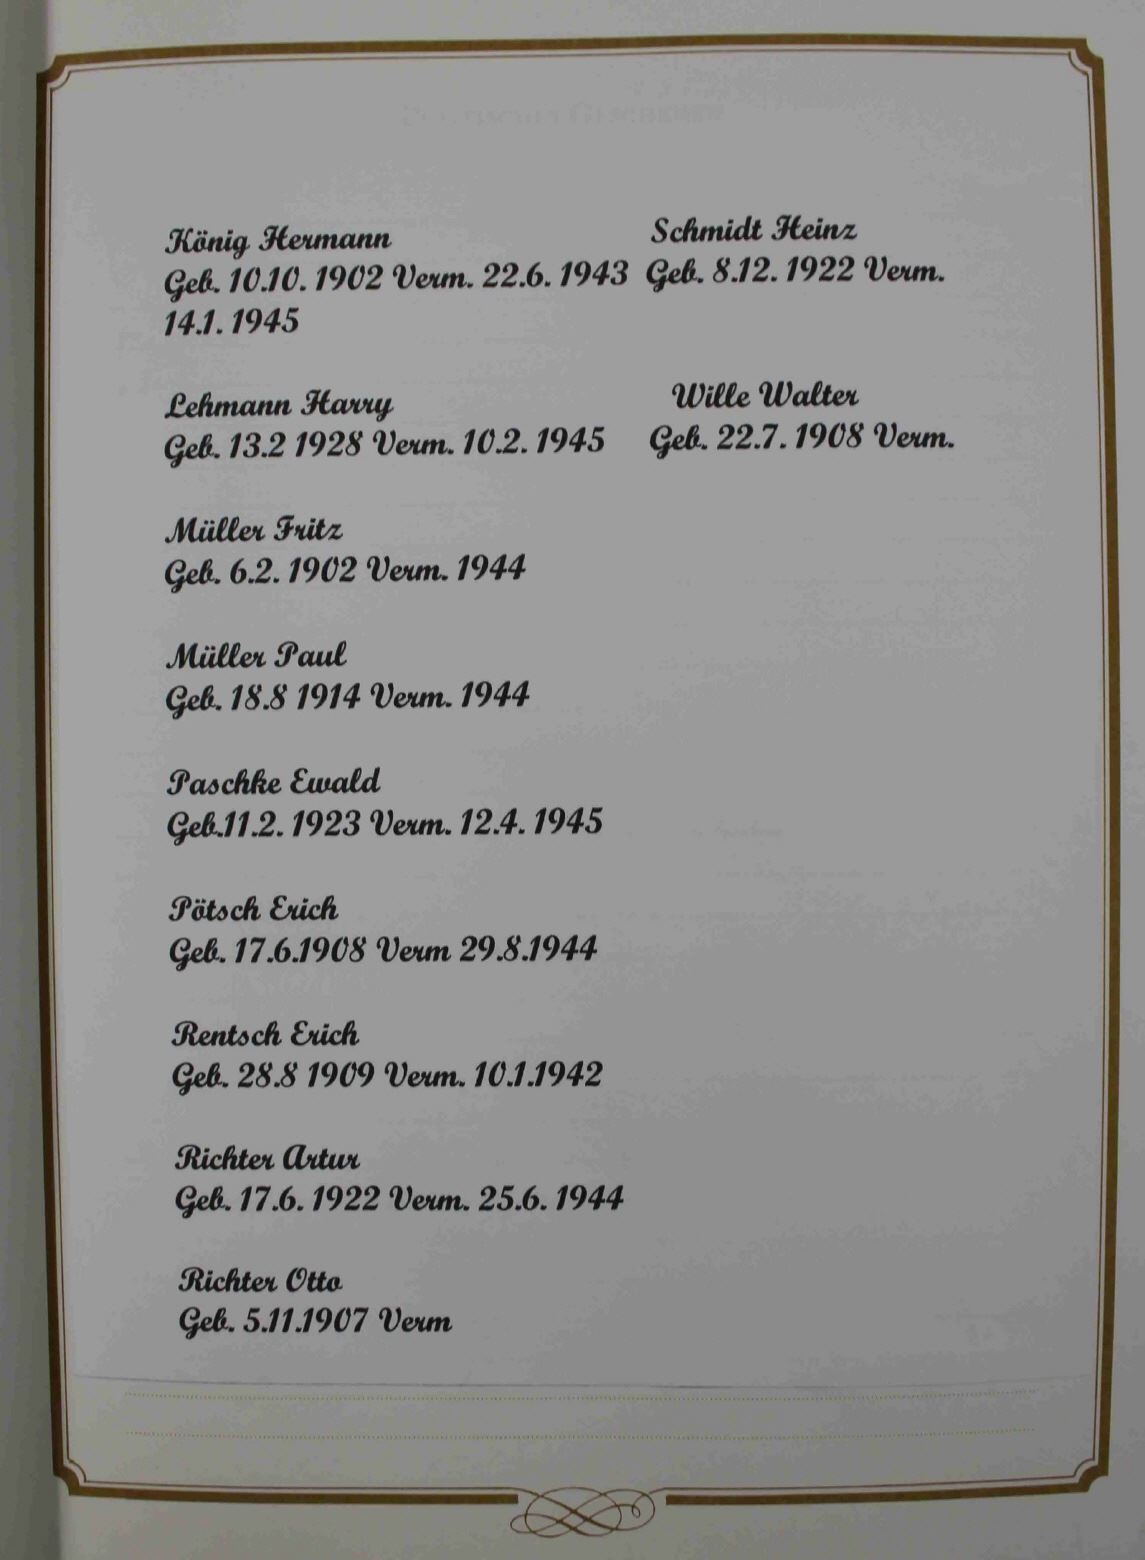 König Hermann
Geb. 10.10. 1902 Verm. 22.6. 1943
14.1. 1945
Lehmann Harry
Geb. 13.2 1928 Verm. 10.2. 1945
Müller Fritz
Geb. 6.2. 1902 Verm. 1944
Müller Paul
Geb. 18.8 1914 Verm. 1944
Paschke Ewald
Geb.11.2. 1923 Verm. 12.4. 1945
Pötsch Erich
Geb. 17.6.1908 Verm 29.8.1944
Rentsch Erich
Geb. 28.8 1909 Verm. 10.1.1942
Richter Artur
Geb. 17.6. 1922 Verm. 25.6. 1944
Richter Otto
Geb. 5.11.1907 Verm
Schmidt Heinz
Geb. 8.12. 1922 Verm.
Wille Walter
Geb. 22.7. 1908 Verm.